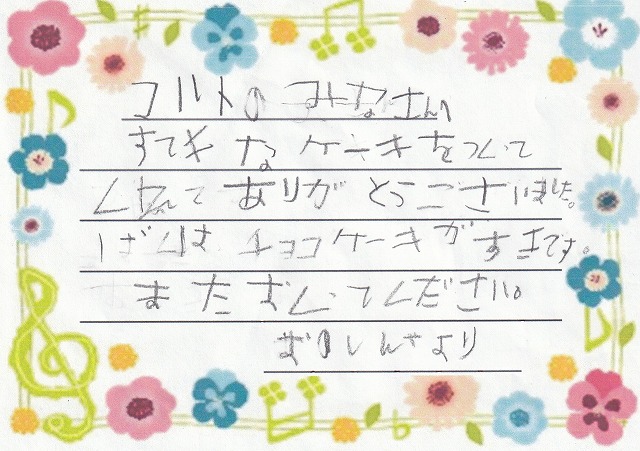 コルトのみなさんへ
すてきなケーキをつくって
くれてありがとうございました。
ぼくはチョコケーキがすきです。
また ください。
より